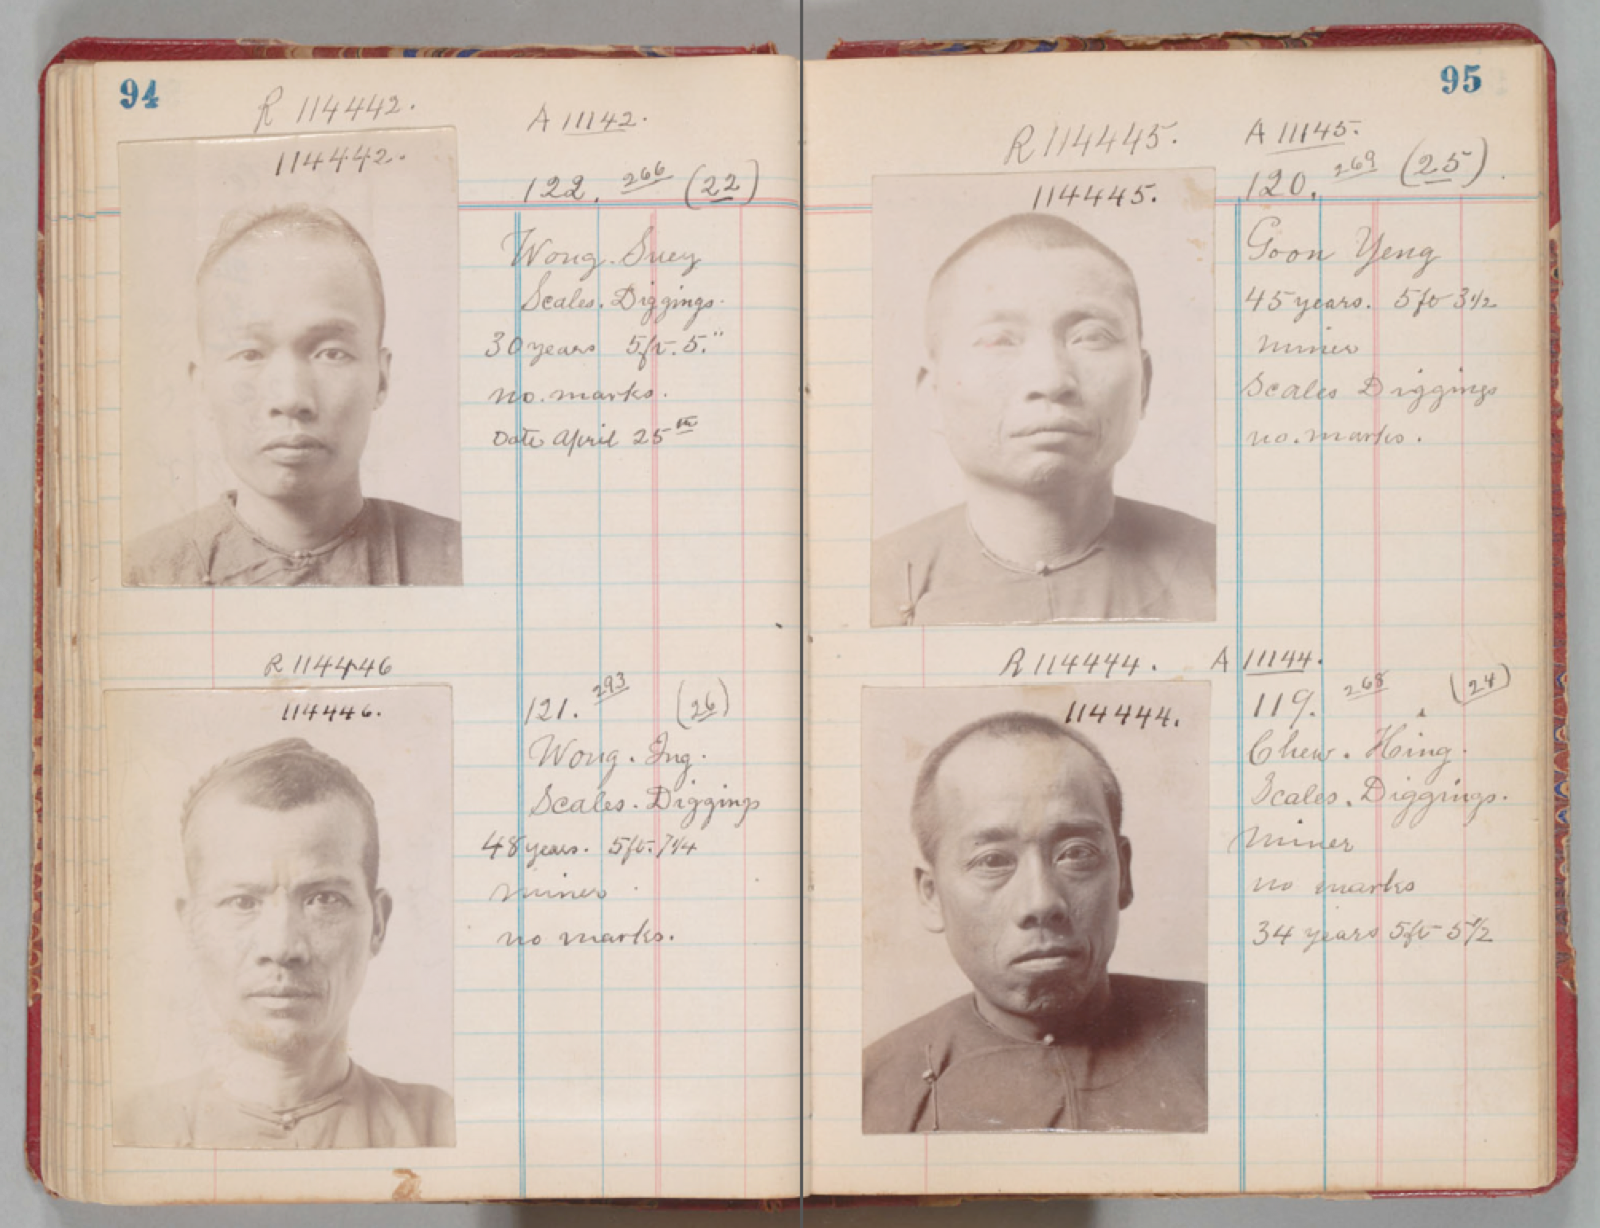 94
R 114442.
A 11142.
114442.
122. 266 (22)
Wong. Suey
Scales. Diggings.
30 years 5ft. 5."
no. marks.
Date April 25th
R 114446
114446.
121. 293 (26)
Wong. Ing.
Scales. Diggings
48 years. 5ft. 7 1/4
miner
no marks.
95
R 114445.
A 11145.
114445.
120. 269 (25).
Goon Yeng
45 years. 5ft 3 1/2
miner
Scales Diggings
no. marks.
R 114444.
A 11144.
114444.
119. 268 (24)
Chew. Hing.
Scales. Diggings.
miner
no marks
34 years 5ft 5 1/2